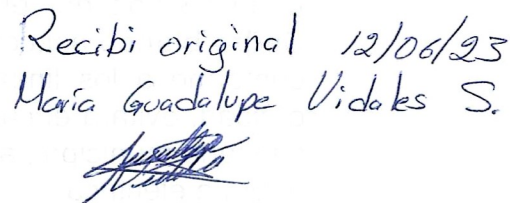 Recibi original 12/06/23
María Guadalupe Vidales S.